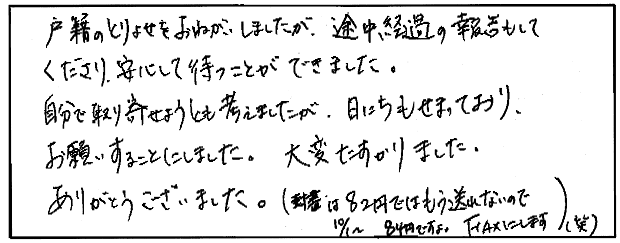 戸籍のとりよせをおねがいしましたが、途中経過の報告もして
くださり、安心して待つことができました。
自分で取り寄せようとも考えましたが、日にちもせまっており、
お願いすることにしました。 大変たすかりました。
ありがとうございました。(封書は82円ではもう送れないので
10/1~ 84円ですよ。 FAXにします)(笑)